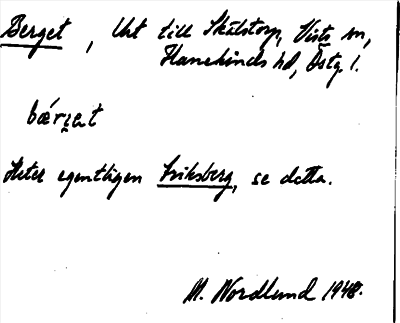 Berget, Uet till Skälstorp, Vists sn,
Hanekinds hd, Östg. l.
bærjet
Heter egentligen Eriksberg, se detta.
M. Nordlund 1948.